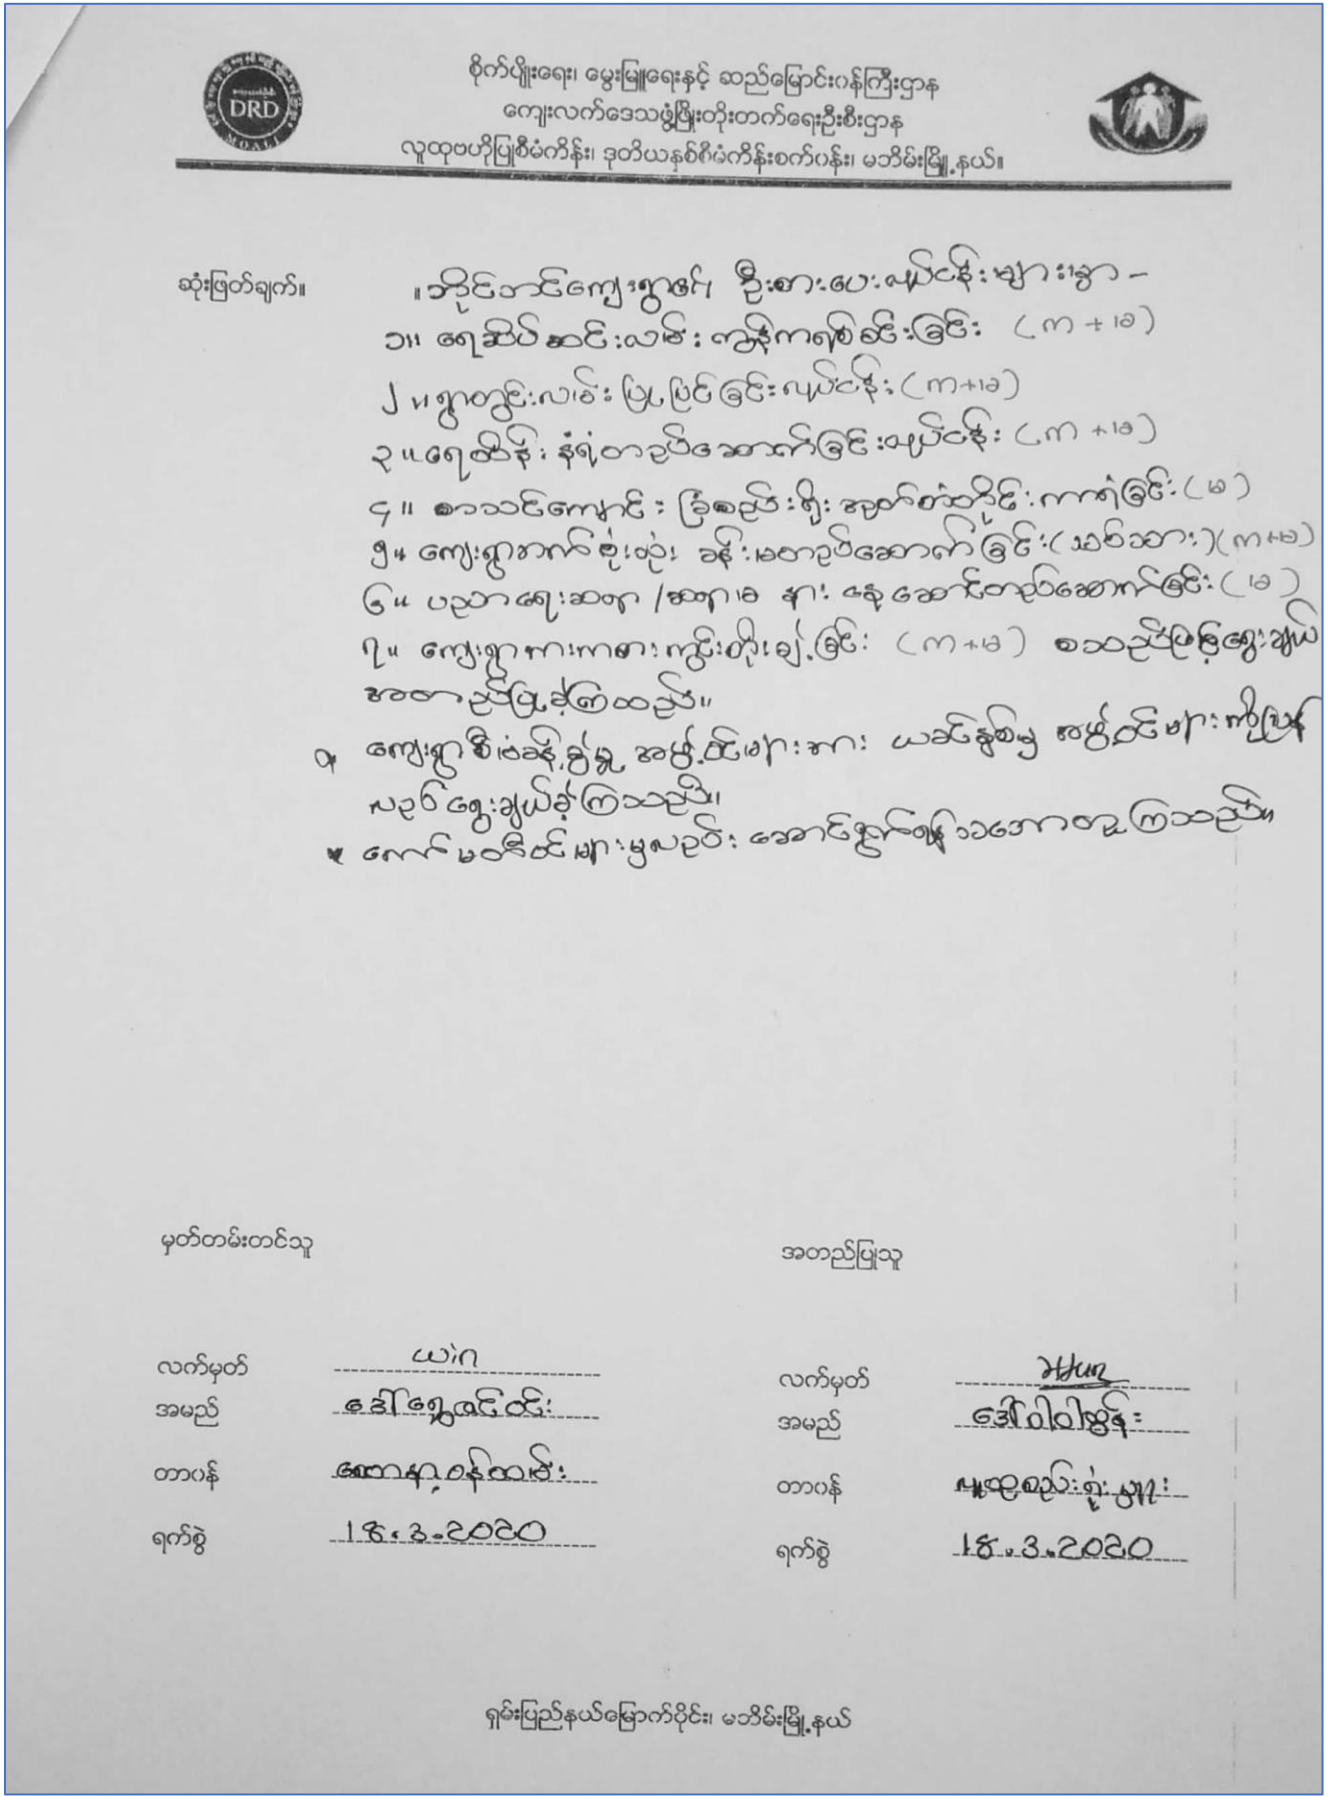 စိုက်ပျိုးရေး၊ မွေးမြူရေးနှင့် ဆည်မြောင်းဝန်ကြီးဌာန
DRD
MOALI
ကျေးလက်ဒေသဖွံ့ဖြိုးတိုးတက်ရေးဦးစီးဌာန
လူထုဗဟိုပြုစီမံကိန်း၊ ဒုတိယနှစ်စီမံကိန်းစက်ဝန်း၊ မဘိမ်းမြို့နယ်။
ဆုံးဖြတ်ချက်။ ။ ကျေးရွာ၏ ဦးစားပေးလုပ်ငန်းများမှာ -
၁။ ရေဆိပ်ဆင်းလမ်း ကွန်ကရစ်ခင်းခြင်း (က + မ)
၂။ ရွာတွင်းလမ်း ပြုပြင်ခြင်းလုပ်ငန်း (က+မ)
၃။ ရေထိန်း နံရံတည်ဆောက်ခြင်းလုပ်ငန်း (က + မ)
၄။ စာသင်ကျောင်း ခြံစည်းရိုး အုတ်တံတိုင်းကာရံခြင်း (မ)
၅။ ကျေးရွာဘက်စုံသုံး ခန်းမတည်ဆောက်ခြင်း (သစ်သား) (က+မ)
၆။ ပညာရေးဆရာ/ဆရာမ နားနေဆောင်တည်ဆောက်ခြင်း (မ)
၇။ ကျေးရွာအားကစားကွင်းတိုးချဲ့ခြင်း (က+မ) စသည်ဖြင့်ရွေးချယ်
အတည်ပြုခဲ့ကြသည်။
ကျေးရွာစီမံခန့်ခွဲမှု အဖွဲ့ဝင်များအား ယခင်နှစ်မှ အဖွဲ့ဝင်များကိုပြန်
လည်ရွေးချယ်ခဲ့ကြသည်။
ကော်မတီဝင်များမှလည်း ဆောင်ရွက်ရန် သဘောတူကြသည်။
မှတ်တမ်းတင်သူ အတည်ပြုသူ
လက်မှတ် win လက်မှတ်
အမည် ဒေါ်ရွှေဇင်ဝင်း အမည် ဒေါ်ဝါဝါထွန်း
တာဝန် စေတနာ့ဝန်ထမ်း တာဝန် လူထုစည်းရုံးမှူး
ရက်စွဲ 18.3.2020 ရက်စွဲ 18.3.2020
ရှမ်းပြည်နယ်မြောက်ပိုင်း၊ မဘိမ်းမြို့နယ်